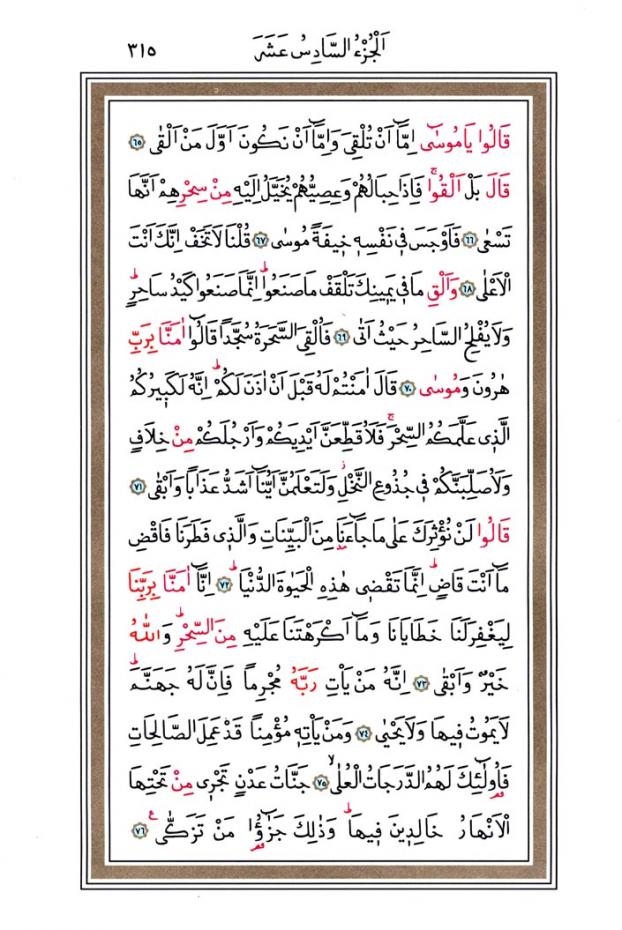 اَلْجُزْءُ السَّادِسُ عَشَرَ ٣١٥
قَالُوا يَامُوسٰٓى اِمَّٓا اَنْ تُلْقِيَ وَاِمَّٓا اَنْ نَكُونَ اَوَّلَ مَنْ اَلْقٰى ﴿٦٥﴾
قَالَ بَلْ اَلْقُواۚ فَاِذَا حِبَالُهُمْ وَعِصِيُّهُمْ يُخَيَّلُ اِلَيْهِ مِنْ سِحْرِهِمْ اَنَّهَا
تَسْعٰى ﴿٦٦﴾ فَاَوْجَسَ ف۪ي نَفْسِه۪ خ۪يفَةً مُوسٰى ﴿٦٧﴾ قُلْنَا لَا تَخَفْ اِنَّكَ اَنْتَ
الْاَعْلٰى ﴿٦٨﴾ وَاَلْقِ مَا ف۪ي يَم۪ينِكَ تَلْقَفْ مَا صَنَعُواۜ اِنَّمَا صَنَعُوا كَيْدُ سَاحِرٍۜ
وَلَا يُفْلِحُ السَّاحِرُ حَيْثُ اَتٰى ﴿٦٩﴾ فَاُلْقِيَ السَّحَرَةُ سُجَّداً قَالُٓوا اٰمَنَّا بِرَبِّ
هٰرُونَ وَمُوسٰى ﴿٧٠﴾ قَالَ اٰمَنْتُمْ لَهُ قَبْلَ اَنْ اٰذَنَ لَكُمْۜ اِنَّهُ لَكَب۪يرُكُمُ
الَّذ۪ي عَلَّمَكُمُ السِّحْرَۚ فَلَاُقَطِّعَنَّ اَيْدِيَكُمْ وَاَرْجُلَكُمْ مِنْ خِلَافٍ
وَلَاُصَلِّبَنَّكُمْ ف۪ي جُذُوعِ النَّخْلِۘ وَلَتَعْلَمُنَّ اَيُّنَٓا اَشَدُّ عَذَاباً وَاَبْقٰى ﴿٧١﴾
قَالُوا لَنْ نُؤْثِرَكَ عَلٰى مَا جَٓاءَنَا مِنَ الْبَيِّنَاتِ وَالَّذ۪ي فَطَرَنَا فَاقْضِ
مَٓا اَنْتَ قَاضٍۜ اِنَّمَا تَقْض۪ي هٰذِهِ الْحَيٰوةَ الدُّنْيَاۜ ﴿٧٢﴾ اِنَّٓا اٰمَنَّا بِرَبِّنَا
لِيَغْفِرَ لَنَا خَطَايَانَا وَمَٓا اَكْرَهْتَنَا عَلَيْهِ مِنَ السِّحْرِۜ وَاللّٰهُ
خَيْرٌ وَاَبْقٰى ﴿٧٣﴾ اِنَّهُ مَنْ يَأْتِ رَبَّهُ مُجْرِماً فَاِنَّ لَهُ جَهَنَّمَۜ
لَا يَمُوتُ ف۪يهَا وَلَا يَحْيٰى ﴿٧٤﴾ وَمَنْ يَأْتِه۪ مُؤْمِناً قَدْ عَمِلَ الصَّالِحَاتِ
فَاُو۬لٰٓئِكَ لَهُمُ الدَّرَجَاتُ الْعُلٰىۙ ﴿٧٥﴾ جَنَّاتُ عَدْنٍ تَجْر۪ي مِنْ تَحْتِهَا
الْاَنْهَارُ خَالِد۪ينَ ف۪يهَاۜ وَذٰلِكَ جَزٰٓؤُ۬ا مَنْ تَزَكّٰى۟ ﴿٧٦﴾